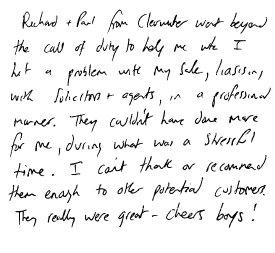 Richard + Paul from Clearwater went beyond
the call of duty to help me whe I
hit a problem with my sale, liasing
with Solicitors + agents, in a professional
manner. They couldn't have done more
for me, during what was a stressful
time. I can't thank or recommend
them enough to other potential customers.
They really were great - cheers boys!